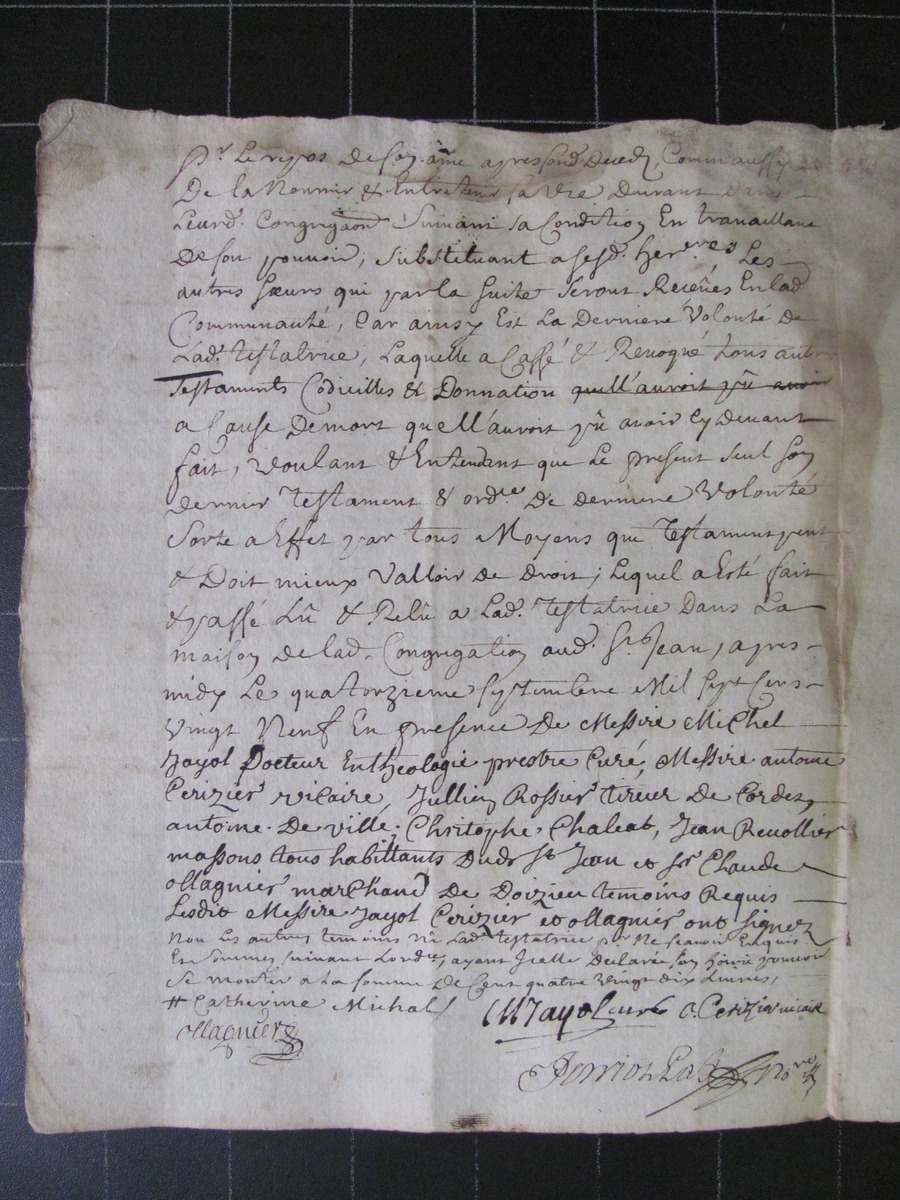 Pr. Le repos De son ame apres son Deced, Comm'aussy
De la Nourrir & Entretenir sa vie Durant Dans
Leurd. Congregaon Suivant sa Condition En travaillant
De son pouvoir; substituant a sesd. her.res Les
autres sœurs qui par la suite seront Receües En lad
Communauté, Car ainsy Est La Derniere Volonté De
Lad. testatrice, Laquelle a Cassé & Revoqué tous autres
Testaments Codicilles & Donnation quell'auroit pû avoir
a Cause Demort quell'auroit pû avoir Cy Devant
fait, voulant & Entendant que Le present seul son
dernier testament & ord.ce De derniere volonté
Sorte a Effet par tous Moyens que Testament peut
& Doit mieux Valloir de droit; Lequel a Esté fait
& passé Lû & Relû a Lad. testatrice Dans La
maison de lad. Congregation aud. St. Jean, apres
midy Le quatorzieme septembre Mil sept Cens
vingt Neuf En presence De Messire Michel
Jayol Docteur En theologie prestre Curé, Messire antoine
Cerizier vicaire, Jullien Rossier tireur De Cordes,
antoine De ville, Christophe Chaleat, Jean Revollier
massons tous habittants Dudt St Jean et sr Claude
ollagnier marchand De Doizieu temoins Requis
Lesdit Messire Jayol Cerizier et ollagnier ont signez
Non Les autres temoins ni Lad. testatrice pr. Ne scavoir Enquis
Et Sommes, suivant Lord.ce, ayant Icelle Declaré son hoirie pouvoir
Se monter a la somme De Cent quatre vingt dix Livres,
# Catherine Michal
M Jayol curé A. Cerizier vicaire
ollagnier
no.re